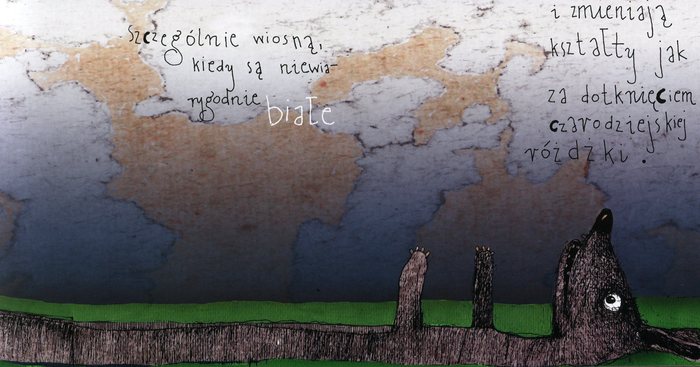 Szczególnie wiosną,
kiedy są niewia-
rygodnie białe
i zmieniają
kształty jak
za dotknięciem
czarodziejskiej
różdżki.